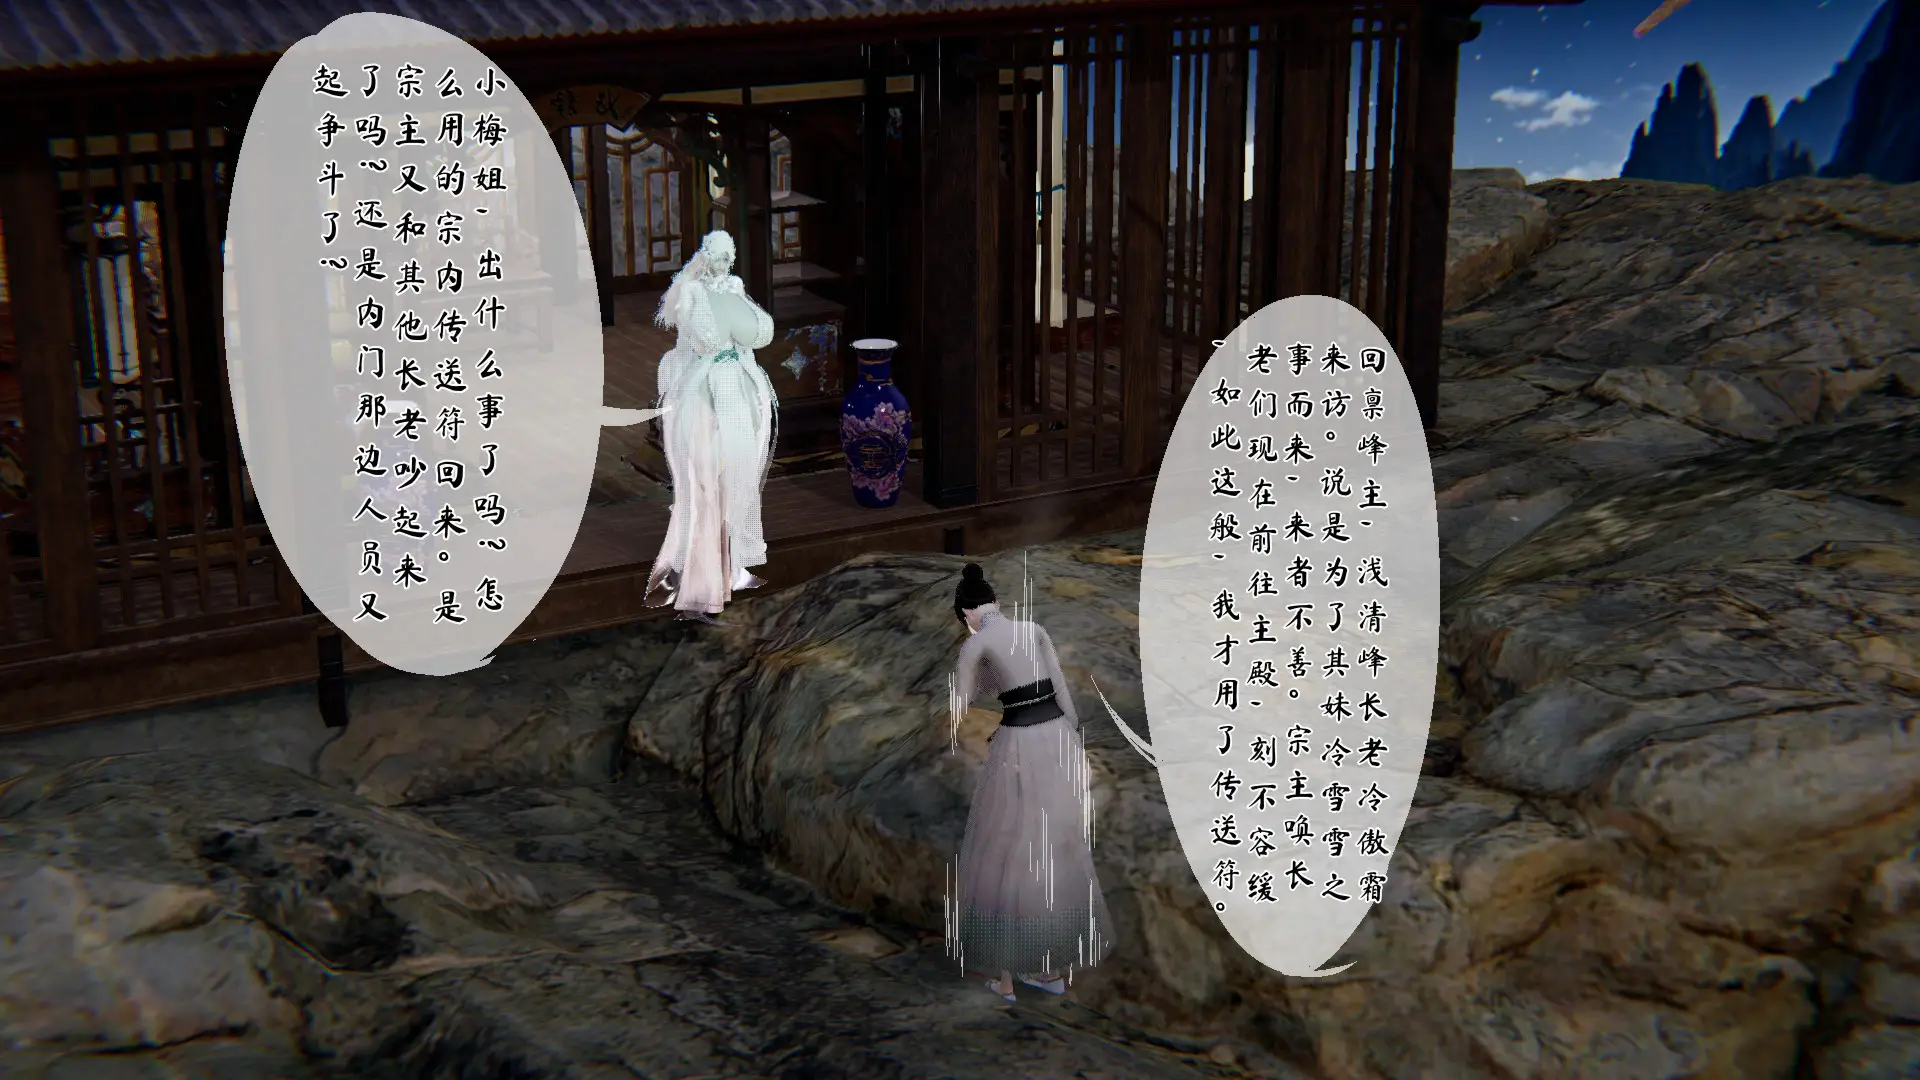 小梅姐、出什么事了吗?怎
么用的宗内传送符回来。是
宗主又和其他长老吵起来
了吗?还是内门那边人员又
起争斗了?
回禀峰主、浅清峰长老冷傲霜
来访。说是为了其妹冷雪雪之
事而来、来者不善。宗主唤长
老们现在前往主殿、刻不容缓
、如此这般、我才用了传送符。